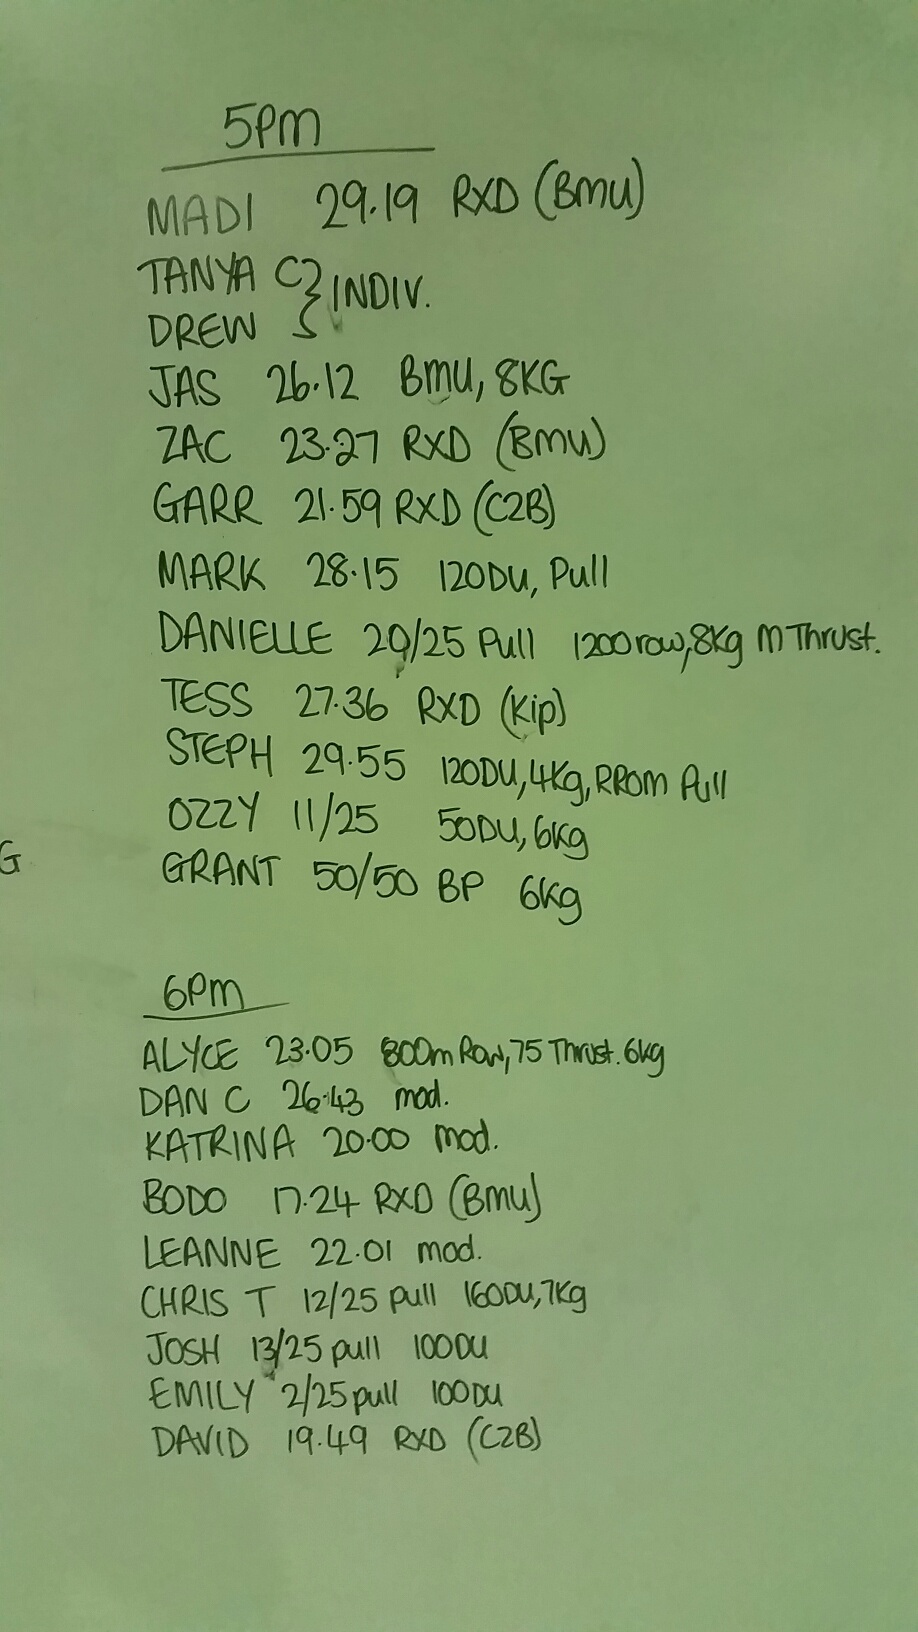 5pm
MADI 29.19 RXD (BMU)
TANYA C } INDIV.
DREW
JAS 26.12 BMU, 8KG
ZAC 23.27 RXD (BMU)
GARR 21.59 RXD (C2B)
MARK 28.15 120DU, Pull
DANIELLE 20/25 Pull 1200row, 8Kg M Thrust.
TESS 27.36 RXD (Kip)
STEPH 29.55 120DU, 4Kg, RROM Pull
OZZY 11/25 50DU, 6Kg
G
GRANT 50/50 BP 6Kg
6pm
ALYCE 23.05 800m Row, 75 Thrust. 6kg
DAN C 26.43 mod.
KATRINA 20.00 mod.
BODO 17.24 RXD (BMU)
LEANNE 22.01 mod.
CHRIS T 12/25 pull 160DU, 7Kg
JOSH 13/25 pull 100DU
EMILY 2/25 pull 100DU
DAVID 19.49 RXD (C2B)